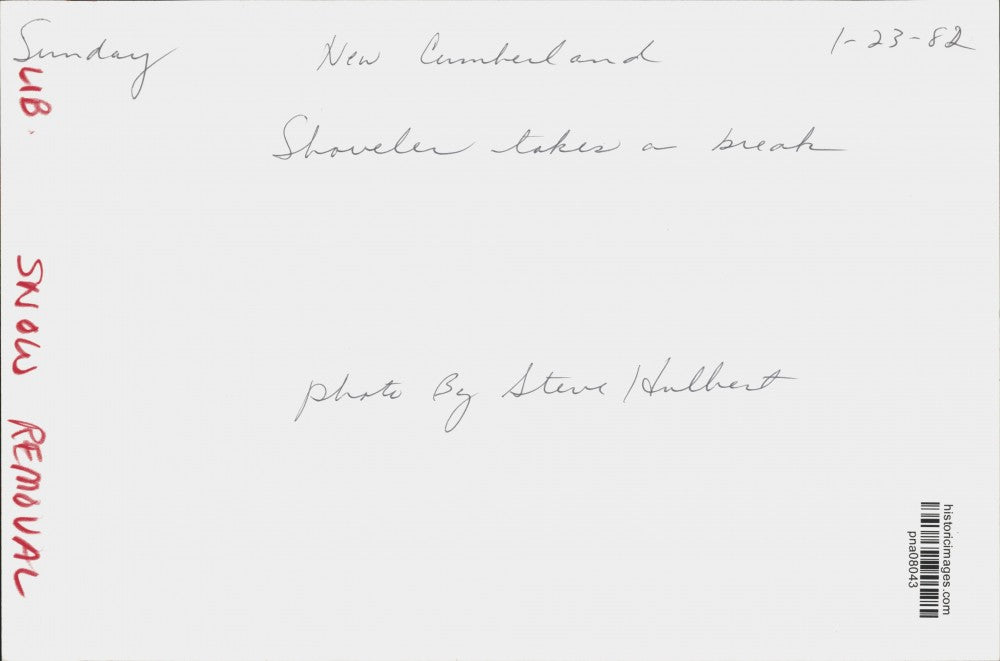 Sunday New Cumberland 1-23-82
LIB.
Shoveler takes a break
SNOW REMOVAL
photo By Steve Hulbert
historicimages.com
pna08043